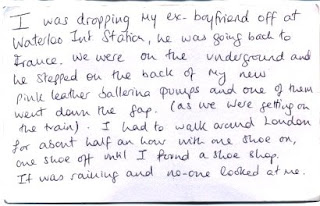 I was dropping my ex-boyfriend off at
Waterloo Int Station, he was going back to
France. We were on the underground and
he stepped on the back of my new
pink leather ballerina pumps and one of them
went down the gap. (as we were getting on
the train). I had to walk around London
for about half an hour with one shoe on,
one shoe off until I found a shoe shop.
It was raining and no-one looked at me.